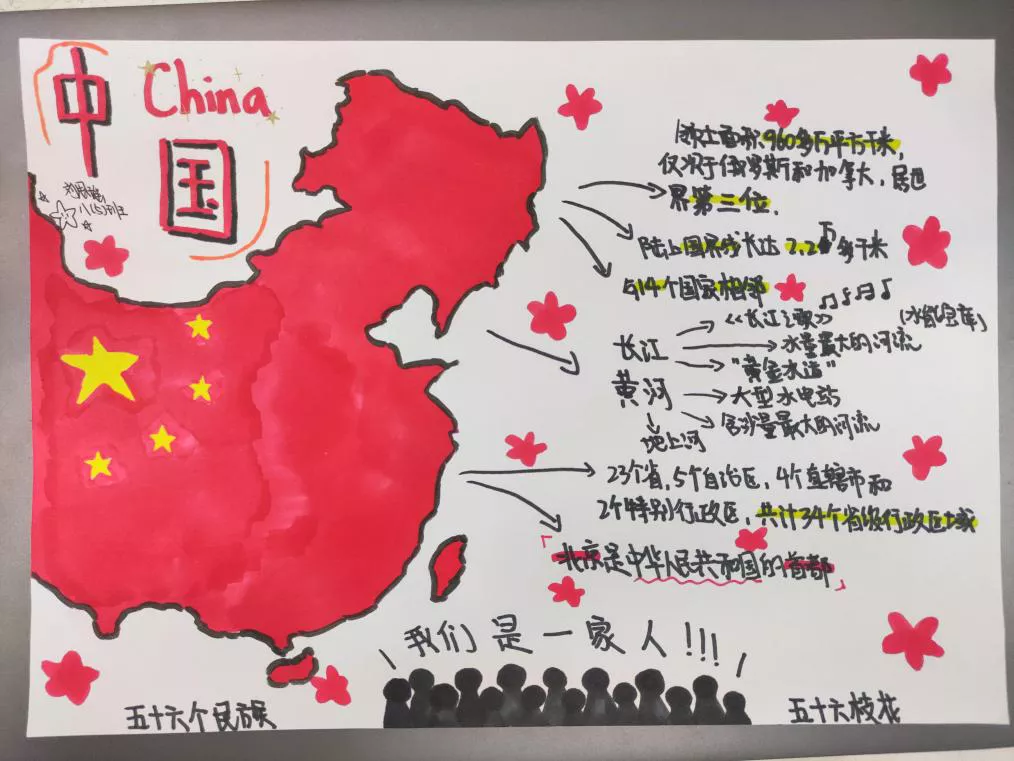 中
China
国
八(5)班
领土面积960多万平方千米,
仅次于俄罗斯和加拿大,居世
界第三位.
陆上国界线长达2.2多千米
与14个国家相邻
《长江之歌》
(水能宝库)
长江
水量最大的河流
"黄金水道"
黄河
大型水电站
含沙量最大的河流
地上河
23个省,5个自治区,4个直辖市和
2个特别行政区,共计34个省级行政区域
「北京是中华人民共和国的首都」
我们是一家人!!!
五十六个民族
五十六枝花